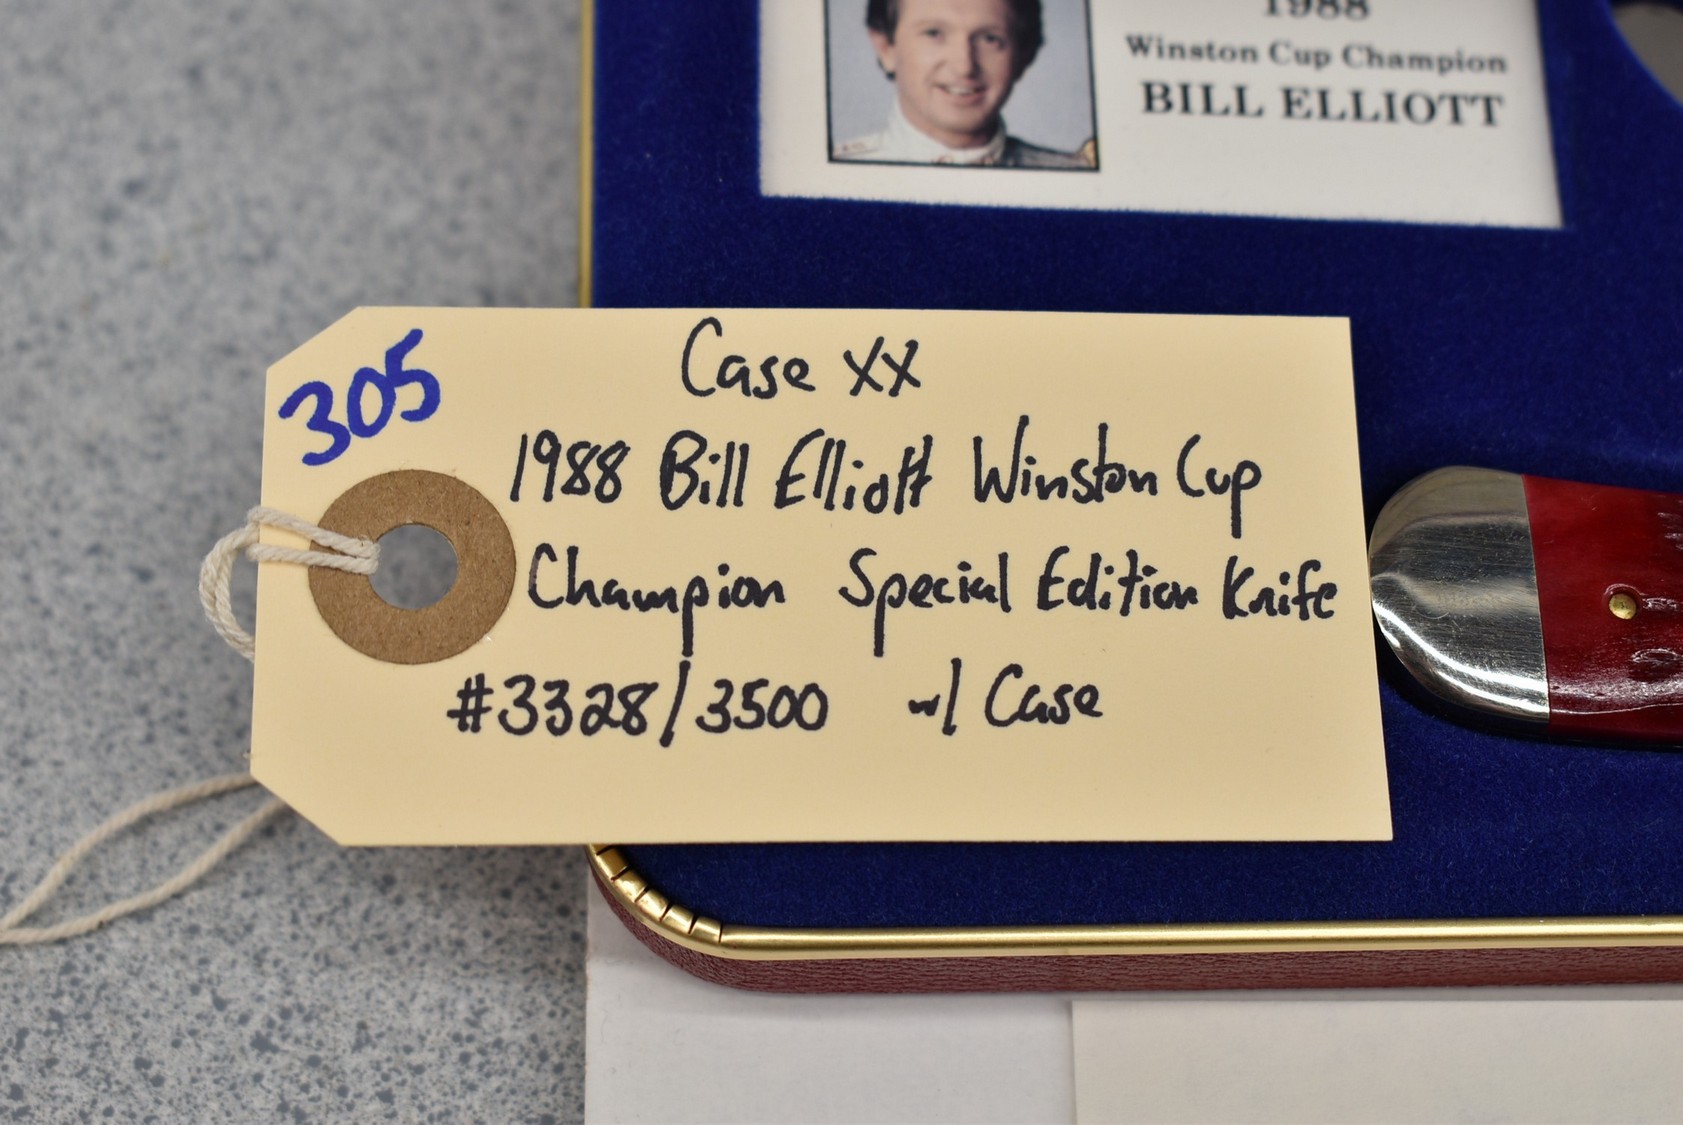 1988
Winston Cup Champion
BILL ELLIOTT
305
Case XX
1988 Bill Elliott Winston Cup
Champion Special Edition Knife
#3328/3500 w/ Case